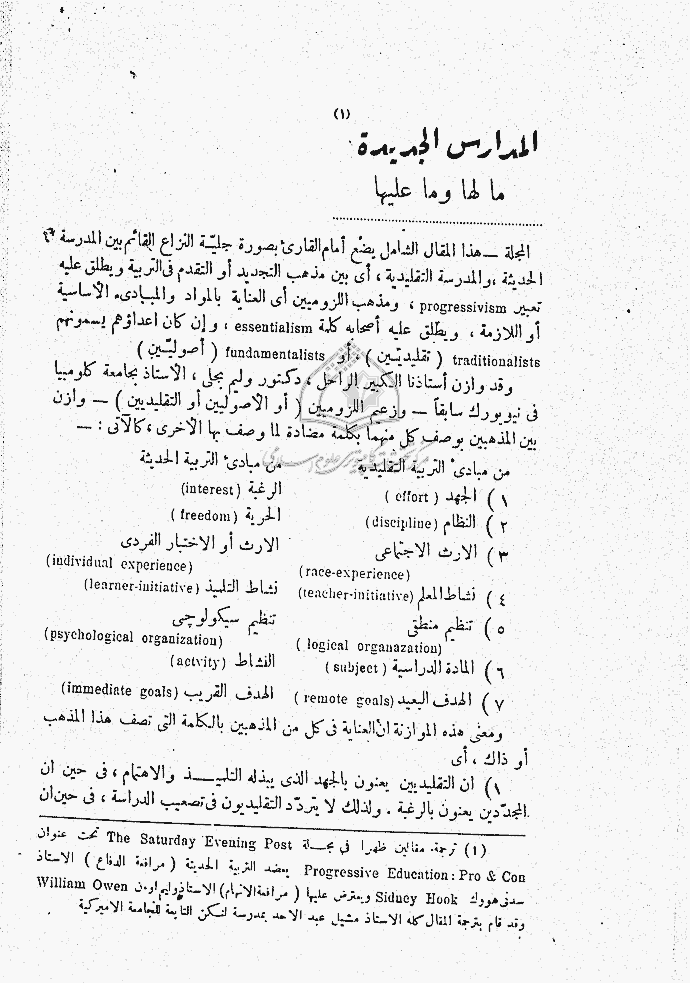 (١)
المدارس الجديدة
ما لها وما عليها
المجلة — هذا المقال الشامل يضع أمام القارئ بصورة جليّة النزاع القائم بين المدرسة
الحديثة ،والمدرسة التقليدية ، أى بين مذهب التجديد أو التقدم فى التربية ويطلق عليه
تعبير progressivism ، ومذهب اللزوميين أى العناية بالمواد والمبادىء الأساسية
أو اللازمة ، ويطلق عليه أصحابه كلمة essentialism ، وإن كان اعداؤهم يسمونهم
traditionalists ( تقليديّين ) ، أو fundamentalists ( أصوليّين )
وقد وازن أستاذنا الكبير الراحل ، دكتور وليم بجلى ، الاستاذ بجامعة كلومبيا
فى نيويورك سابقاً — وزعيم اللزوميين ( أو الاصوليين أو التقليديين ) — وازن
بين المذهبين بوصف كل منهما بكلمة مضادة لما وصف بها الاخرى ، كالآتى : —
من مبادئ التربية التقليدية من مبادئ التربية الحديثة
١ ) الجهد ( effort ) الرغبة (interest)
٢ ) النظام (discipline) الحرية ( freedom )
٣ ) الارث الاجتماعى الارث أو الاختبار الفردى
(race-experience) (individual experience)
٤ ) نشاط المعلم (teacher-initiative) نشاط التلميذ (learner-initiative)
٥ ) تنظيم منطقى تنظيم سيكولوجى
( logical organazation) (psychological organization)
٦ ) المادة الدراسية ( subject ) النشاط (actvity)
٧ ) الهدف البعيد (remote goals ) الهدف القريب (immediate goals)
ومعنى هذه الموازنة ان العناية فى كل من المذهبين بالكلمة التى تصف هذا المذهب
أو ذاك ، أى
١ ) ان التقليديين يعنون بالجهد الذى يبذله التلميـذ والاهتمام ، فى حين ان
المجدّدين يعنون بالرغبة . ولذلك لا يتردّد التقليديون فى تصعيب الدراسة ، فى حين ان
(١) ترجمة مقالين ظهرا فى مجـلة The Saturday Evening Post تحت عنوان
Progressive Education: Pro & Con يعضد التربية الحديثة ( مرافعة الدفاع ) الاستاذ
سدنى هوك Sidney Hook ويعترض عليها ( مرافعة الاتهام) الاستاذ وليم اوين William Owen
وقد قام بترجمة المقال كله الاستاذ مشيل عبد الاحد بمدرسة لنكن التابعة للجامعة الاميركية